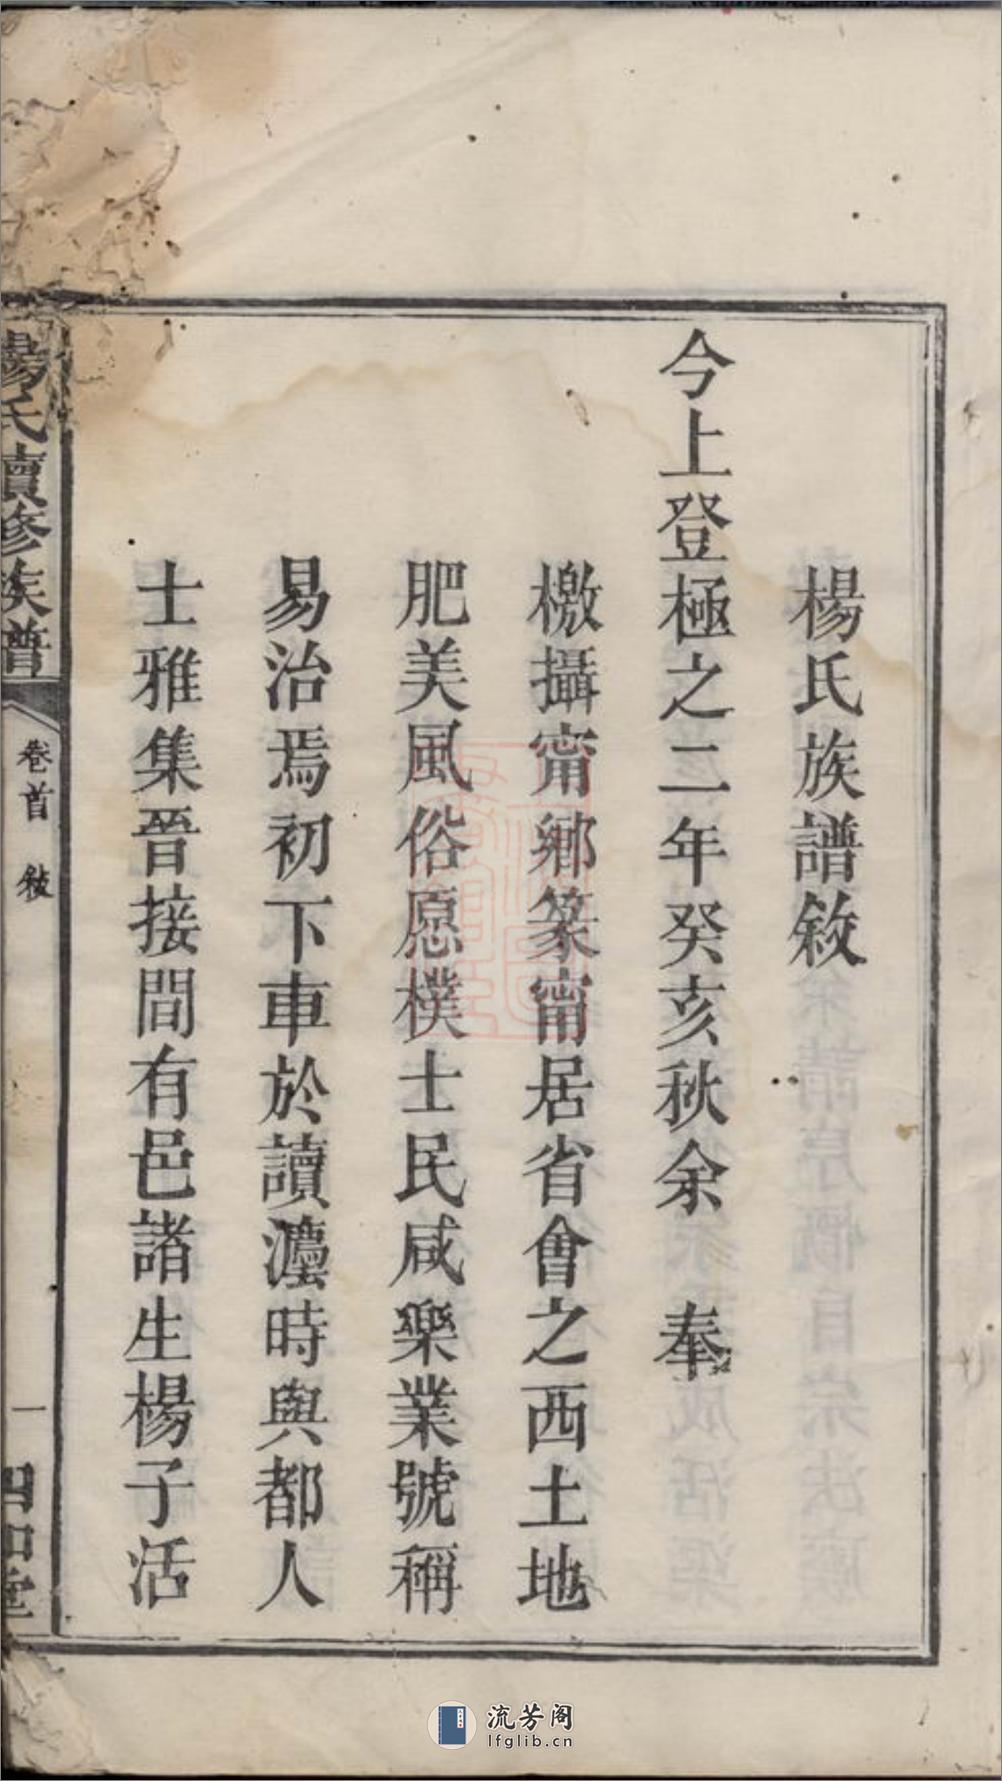 楊氏族譜敘
今上登極之二年癸亥秋余 奉
檄攝甯鄉篆甯居省會之西土地
肥美風俗愿樸士民咸樂業號稱
易治焉初下車於讀灋時與都人
士雅集晉接間有邑諸生楊子活
楊氏續修族譜
卷首 敘
一
四知堂
流芳阁
lfglib.cn